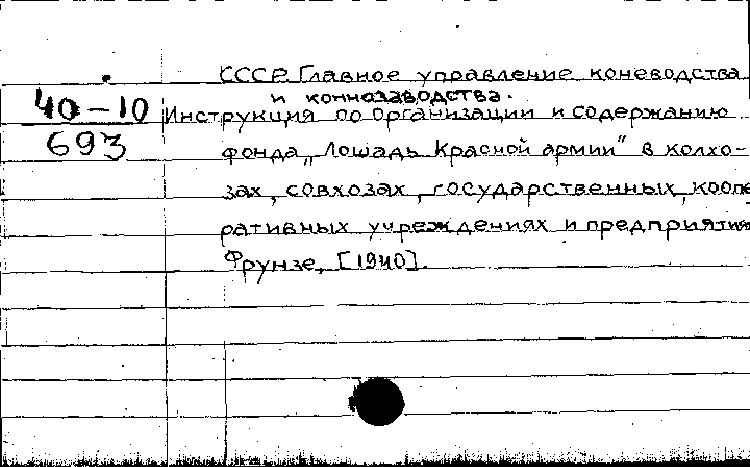 СССР. Главное управление коневодства
и коннозаводства.
40-10
693
Инструкция по организации и содержанию
фонда „Лошадь Красной армии" в колхо-
зах, совхозах, государственных, коопе
ративных учреждениях и предприятия
Фрунзе, [1940].